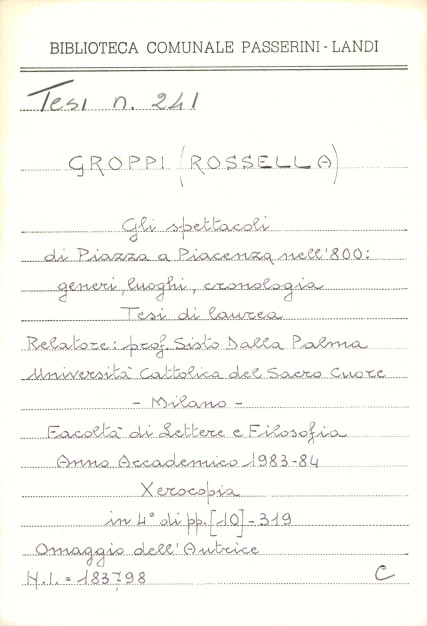 BIBLIOTECA COMUNALE PASSERINI - LANDI
Tesi n. 241
GROPPI (ROSSELLA)
Gli spettacoli
di Piazza a Piacenza nell'800:
generi, luoghi, cronologia
Tesi di laurea
Relatore: prof. Sisto Dalla Palma
Università Cattolica del Sacro Cuore
- Milano -
Facoltà di Lettere e Filosofia
Anno Accademico 1983-84
Xerocopia
in 4° di pp. [10] - 319
Omaggio dell'Autrice
N.I. = 183798 C